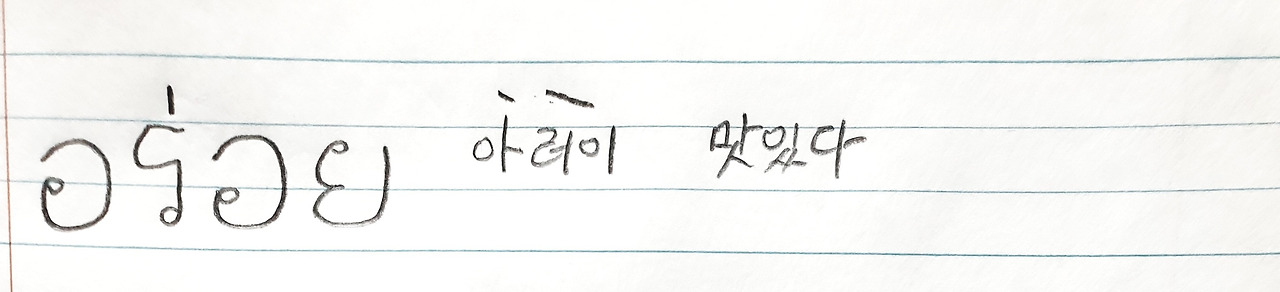 อร่อย 아러이 맛있다